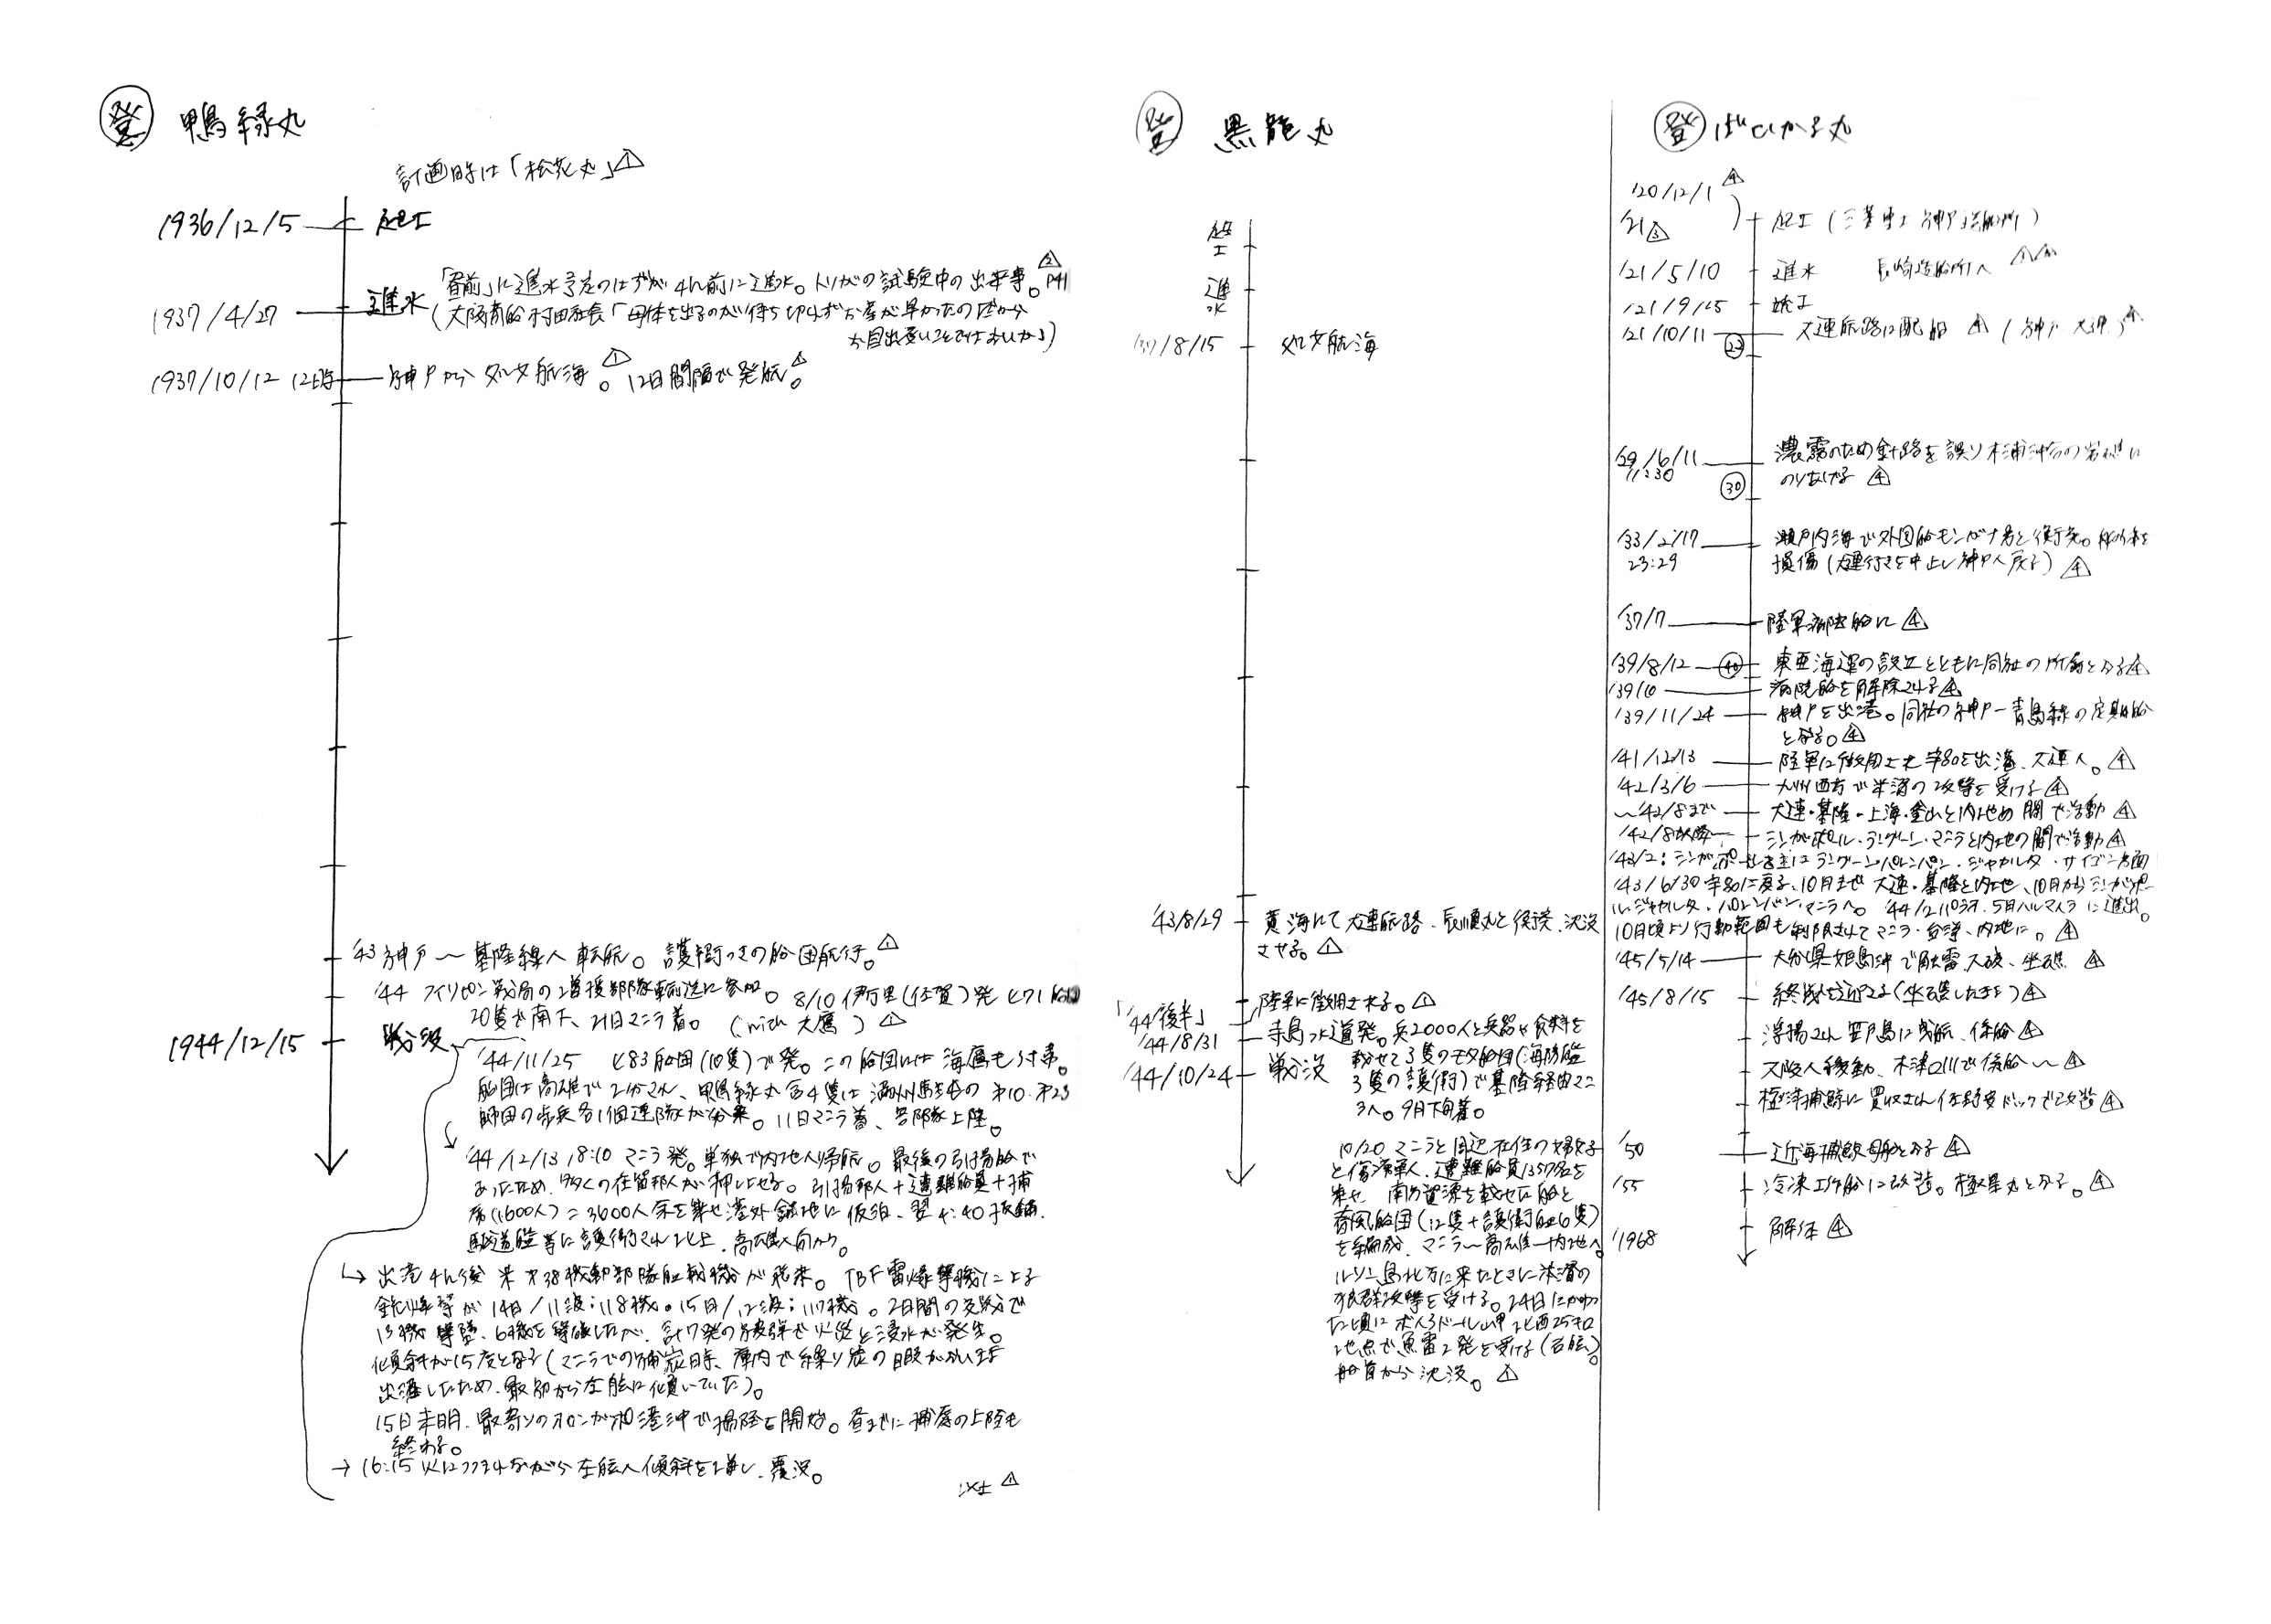 登 鴨緑丸
計画時は「松花丸」1
1936/12/5 起工
「昼前」に進水予定のはずが4h前に進水。トリガの試験中の出来事。2 P41
1937/4/27 進水 (大阪商船村田社長「母体を出るのが待ち切れずお産が早かったのだから
お目出度いことではないか」)
1937/10/12 12時 神戸から処女航海1。12日間隔で発航1。
'43 神戸〜基隆線へ転航。護衛つきの船団航行。1
'44 フィリピン戦局の増援部隊輸送に参加。8/10 伊万里(佐賀)発 ヒ71船団
20隻で南下、21日マニラ着。(with 大鷹) 1
1944/12/15 戦分没
'44/11/25 ヒ83船団(10隻)で発。この船団には海鷹も付帯。
船団は高雄で2分され、鴨緑丸含4隻は満州駐屯の第10・第23
師団の歩兵各1個連隊が分乗。11日マニラ着、各部隊上陸。
'44/12/13 18:10 マニラ発。単独で内地へ帰航。最後の引揚船で
あったため、多くの在留邦人が押しよせる。引揚邦人+遭難船員+捕
虜(1600人)=3600人余を乗せ港外錨地に仮泊、翌4:40抜錨。
駆逐艦等に護衛され北上、高雄へ向かう。
出港4h後 米第38機動部隊艦載機が飛来。TBF雷爆撃機による
銃爆撃が 14日/11波:118機。15日/12波:117機。2日間の交戦で
13機撃墜、6機を撃破したが、計7発の命中弾で火災と浸水が発生。
傾斜が15度となる(マニラでの補炭時、庫内で繰り炭の日暇がないまま
出港したため、最初から左舷に傾いていた)。
15日未明、最寄りのオロンガポ港沖で揚陸を開始。昼までに捕虜の上陸も
終わる。
16:15 火につつまれながら左舷へ傾斜を増し、覆没。
以上 1
登 黒龍丸
起工
進水
'37/8/15 処女航海
'43/8/29 黄海にて大連航路・長順丸と接渉、沈没
させる。1
「'44後半」 陸軍に徴用される。1
'44/8/31 寺島水道発。兵2000人と兵器や食料を
載せて3隻のモタ船団(海防艦
3隻の護衛)で基隆経由マニ
ラへ。9月下旬着。
'44/10/24 戦分没
10/20 マニラと周辺在住の婦女子
と傷病軍人、遭難船員1357名を
乗せ 南方資源を載せた船と
春風船団(12隻+護衛船6隻)
を編成、マニラ〜高雄〜内地へ。
ルソン島北方に来たときに米潜の
狼群攻撃を受ける。24日にかわっ
た頃に ボヘアドール岬北西25キロ
地点で魚雷2発を受ける(右舷)。
船首から沈没。1
登 ばいかる丸
'20/12/1 4
'21 3 起工(三菱重工 神戸造船所)
'21/5/10 進水 長崎造船所へ
'21/9/25 竣工
'21/10/11 大連航路に配船 4 (神戸 大連) 4
'29/6/11 濃霧のため針路を誤り木浦沖合の岩礁に
11:30 のりあげる 4
30
'33/2/17 瀬戸内海で外国船モンガナ号と衝突。船体を
23:29 損傷(大連行きを中止し神戸へ戻る) 4
'37/7 陸軍病院船に 4
'39/8/12 40 東亜海運の設立とともに同社の所有となる4
'39/10 病院船を解除される4
'39/11/24 神戸を出港。同社の神戸ー青島線の定期船
となる。4
'41/12/13 陸軍に徴用され宇品を出港、大連へ。4
'42/3/6 九州西方で米潜の攻撃を受ける4
〜'42/8まで 大連・基隆・上海・釜山と内地の間で活動 4
'42/8以降 シンガポール・ラングーン・マニラと内地の間で活動 4
'43/2:シンガポールを主にラングーン・パレンバン・ジャカルタ・サイゴン方面
'43/6/30 宇品に戻る、10月まで大連・基隆と内地、10月からシンガポー
ル・ジャカルタ・パレンバン・マニラへ。'44/2パラオ、5月ハルマヘラに進出。
10月頃より行動範囲も制限されてマニラ・台湾、内地に。4
'45/5/14 大分県姫島沖で触雷、大破、坐礁 4
'45/8/15 終戦を迎える(坐礁したまま) 4
浮揚され笠戸島に曳航、係船 4
大阪へ移動、木津川で係船〜 4
極洋捕鯨に買収され佐野安ドックで改造 4
'50 近海捕鯨母船となる 4
'55 冷凍工作船に改造。極星丸となる。4
'1968 解体 4